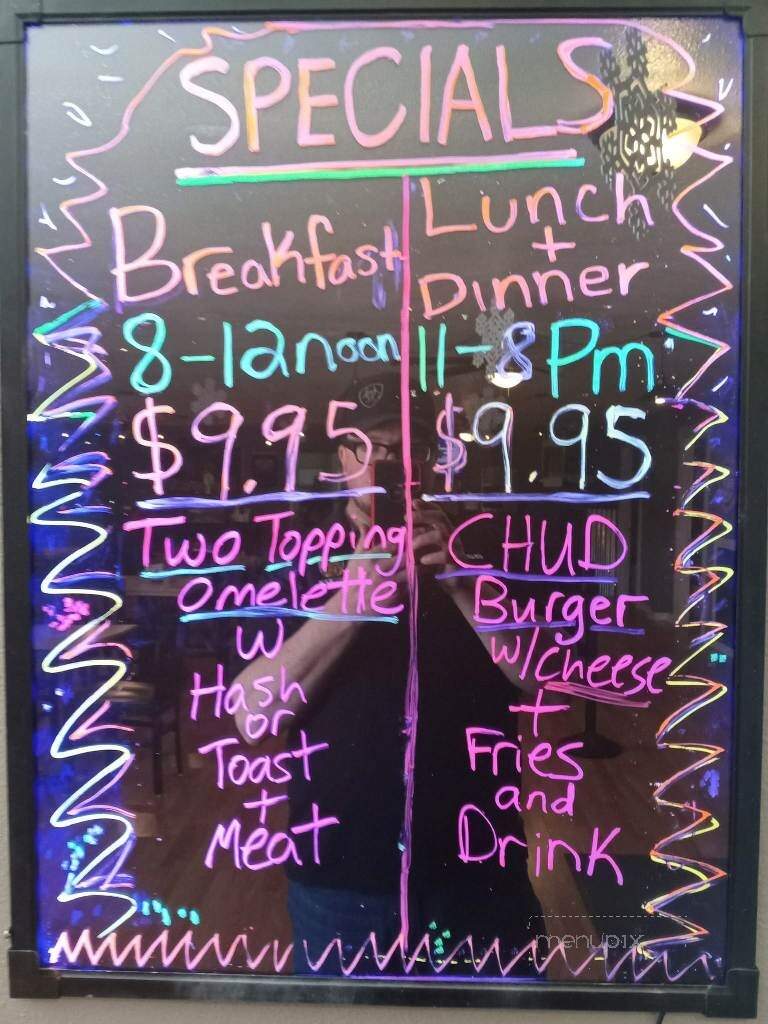 SPECIALS
Breakfast
8-12noon
$9.95
Two Topping
Omelette
W
Hash
or
Toast
+
Meat
Lunch
+
Dinner
11-8Pm
$9.95
CHUD
Burger
w/cheese
+
Fries
and
Drink
menupix